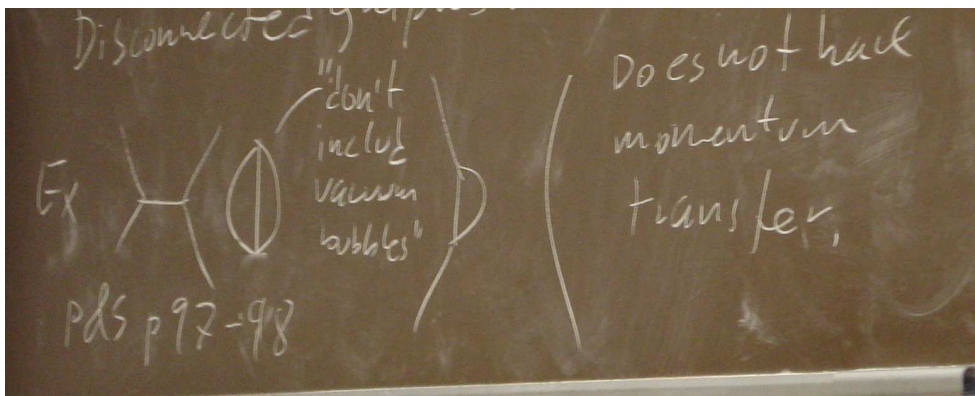 Disconnected graphs
Ex
"don't
includ
vacuum
bubbles"
Does not have
momentum
transfer.
P&S p 97-98